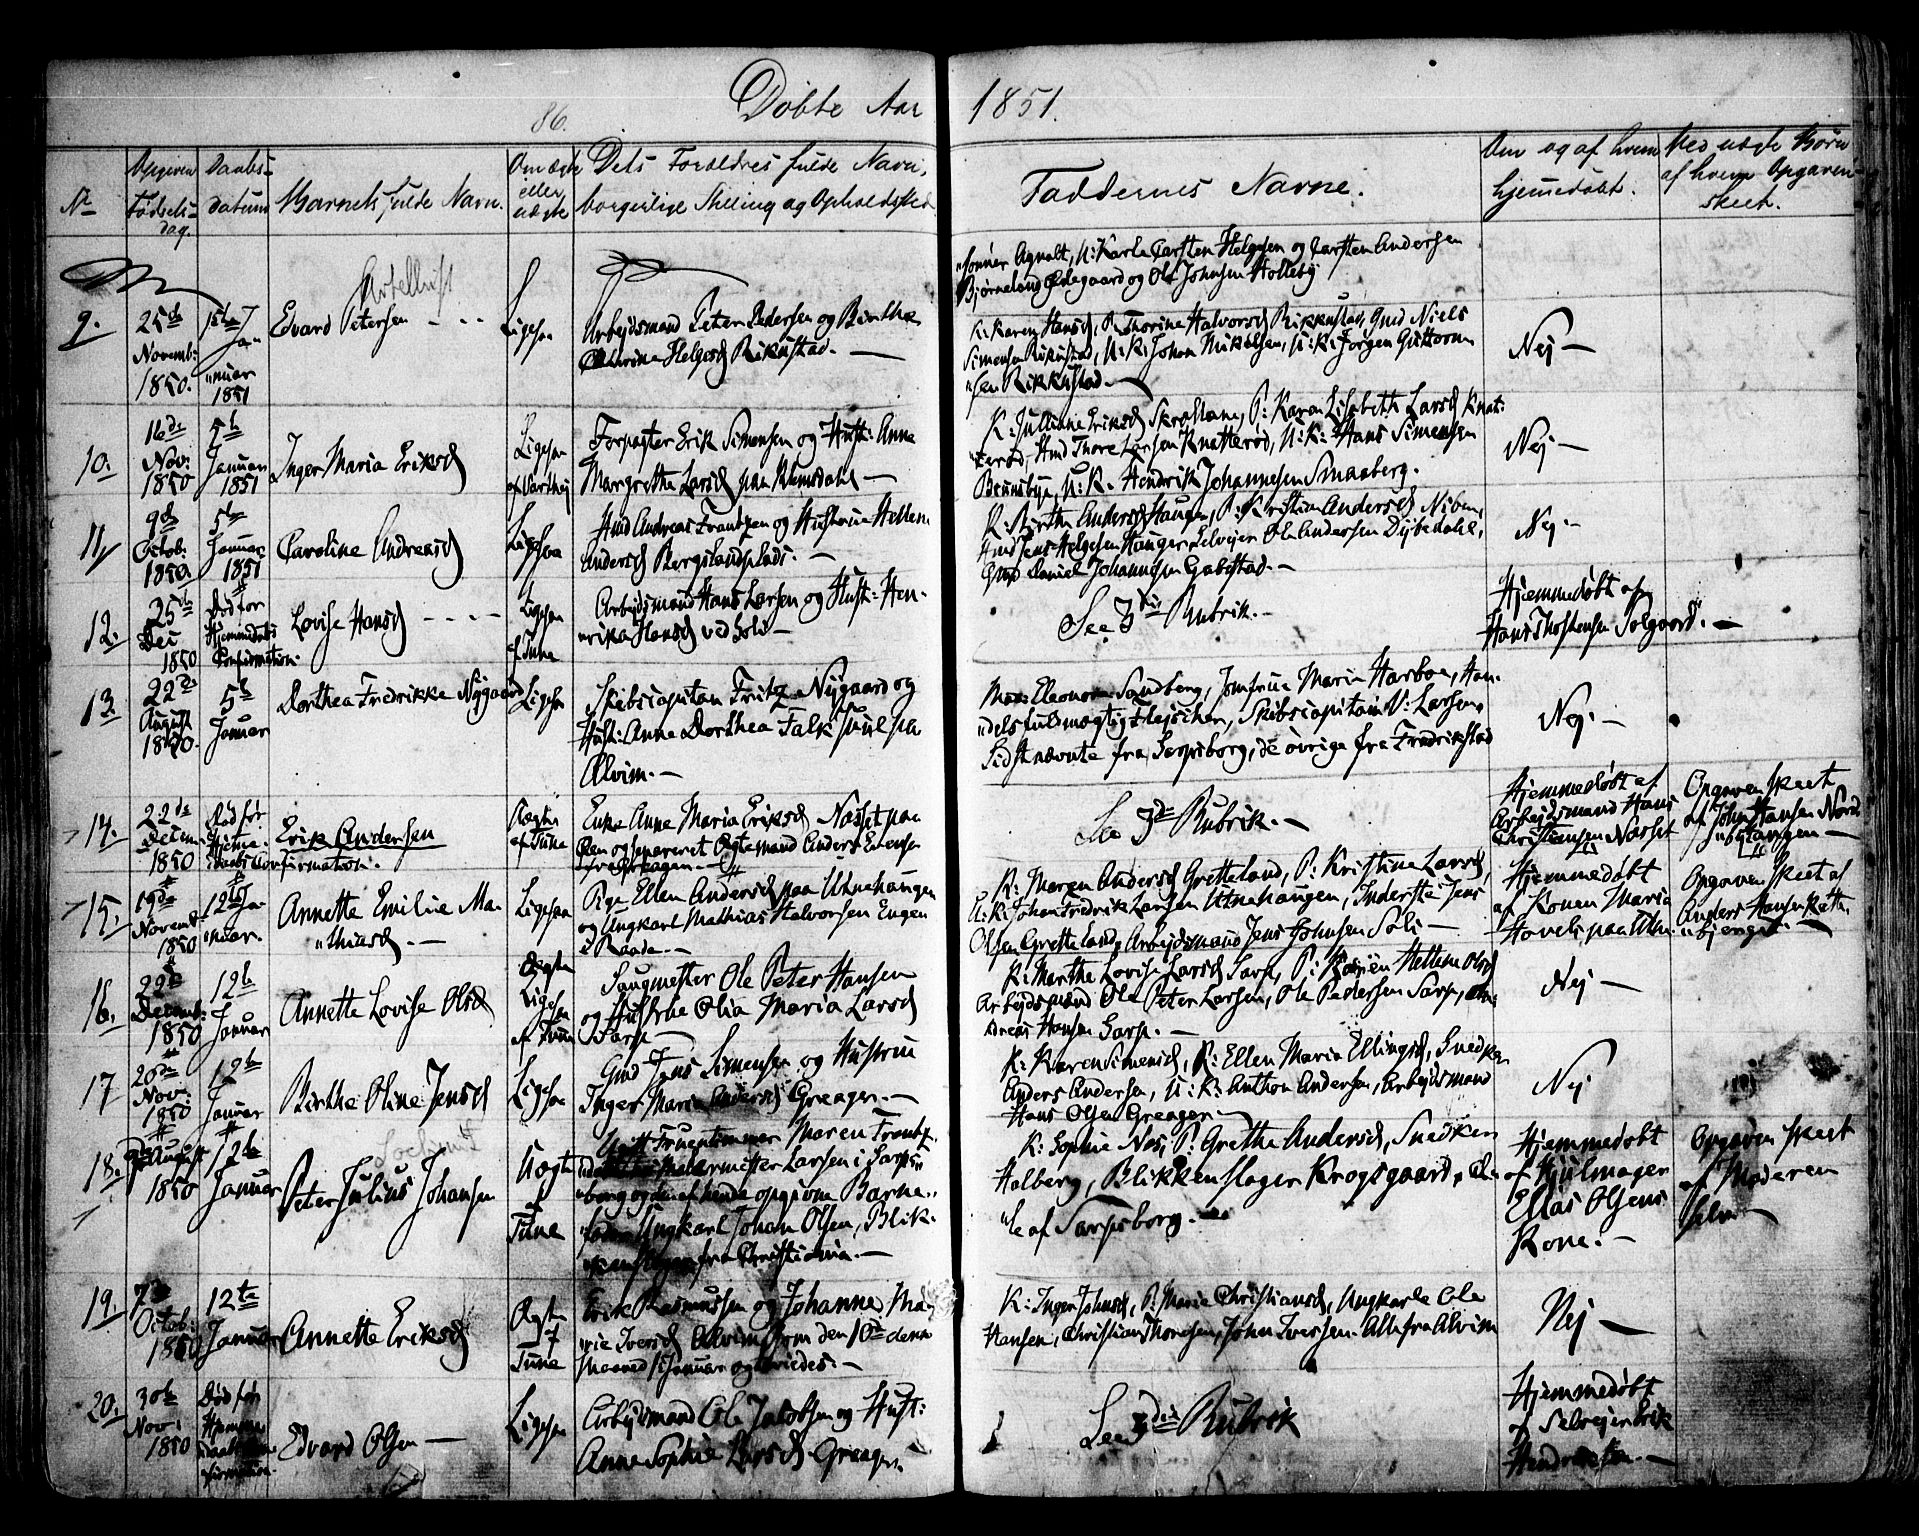 86.
Døbte Aar 1851.
No
Opgiven Fødsels-dag.
Daabs-datum
Barnets fulde Navn.
Om ægte eller uægte
Dets Forældres fulde Navn, borgerlige Stilling og Opholdssted
Faddernes Navne.
Om og af hvem hjemmedøbt.
Ved uægte Børn af hvem Opgaven skeet.
"sønner Agnalt, U:Karle Carsten Helgesen og Carsten Andersen
Bjørneland Ødegaard og Ole Johnsen Holleby
9.
25de
Novemb:
1850.
Jan
"nuar
1851
Edvard Petersen
Ligesaa
Arbeidsmand Peter Pedersen og Birthe
Cathrine Helgesd Rikustad.
K: Karen Hansd, P: Thorine Halvorsd Rikkustad, Gmd Niels
Simensen Rikustad, U.K: Johan Mikelsen, U:K: Jørgen Guttorm
"sen Rikkustad.
Nej
10.
16de
Nov:
1850
5te
Januar
1851
Inger Maria Eriksd
Ligesaa
af Varteig
Forpagter Erik Simensen og Hust: Anne
Margrethe Larsd paa Klemsdahl
K: Julliane Eriksd, P: Karen Lisabeth Larsd Knat-
terød, Hmd Thore Larsen Knatterød, U:K: Hans Simensen
U:K. Hendrik Johannesen Smaaberg.
Nej
11.
9de
Octob:
1850.
5te
Januar
1851
Caroline Andreasd
Ligesaa
Hmd Andreas Frantzen og Hustrue Hellene
Andersd Bergslandplads.
K. Birthe Andersd Haugen, P: Kristian Andersd
Hmd Jens Helgesen Haugen, Selveier Ole Andersen Dybedahl,
Gmd Daniel Johannesen Gabestad.
Nej
12.
25de
Dec
1850
Død før
Hjemmedaabs
Confirmation
Lovise Hansd
Ligesaa
af Tune
Arbeidsmand Hans Larsen og Hust: Hen-
"rika Hansd ved Soli
See 3die Rubrik.
Hjemmedøbt af
Hans Thostensen Solgaard.
13.
22de
August
1850.
5te
Januar
Dorthea Fredrikke Nygaard
Ligesaa
Skibscapitan Fritz Nygaard og
Hust: Anne Dorthea Falk paa
Alvim.
Eleonora Sandberg, Jomfrue Maria Harboe, Han-
"delsfuldmægtig Fleischer, Skibscapitain V: Larsen,
Sidstnævnte fra Sarpsborg, de øvrige fra Fredrikstad
Nej.
14.
22de
Decem:
1850
Død før
Hjemme
daabs Confirmation.
Erik Andersen
Uægte
af Tune
Enke Anne Maria Eriksd Næsset paa
Øen og separeret Ægtemand Anders Evensen
See 3die Rubrik.
Hjemmedøbt af
Arbeidsmand Hans
Christiansen Næsset
Opgaven skeet
af John Hansen Nord
15.
19de
Novemb:
1850
12te Ja-
"nuar.
Annette Emilie Ma-
"thiasd.
Ligesaa
Pige Ellen Andersd paa Utnehaugen
og Ungkarl Mathias Halvorsen Engen
i Raade.
K: Maren Andersd Gretteland, P: Kristine Larsd,
U:K: Johan Fredrik Larsen Utnehaugen, Inderste Jens
Olsen Gretteland, Arbeidsmand Jens Johnsen Soli
Hjemmedøbt
af Konen Maria
Opgaven skeet af
Anders Hansen
16.
22de
Decemb:
1850
12te
Januar
Annette Lovise Olsd
Ægte
Ligesaa
af Tune
Saugmester Ole Peter Hansen
og Hustrue Olia Maria Larsd
Sarp
K: Marthe Lovise Larsd Sarp, P: Karen Hellene Olsd
Arbeidsmænd Ole Peter Larsen, Ole Pedersen Sarp, An-
dreas Hansen Sarp.
Nej
17
20de
Nov:
1850
12te
Januar
Birthe Oline Jensd
Ligesaa
Gmd Jens Simensen og Hustrue
Inger Maria Andersd Greager.
K: Karen Simensd, P: Ellen Maria Ellingsd, Snedker
Anders Andersen, U:K: Anthon Andersen, Arbeidsmand
Hans Olsen Greager.
Nej
18.
August
1850
12te
Januar
Peter Julius Johansen
Uægte
f
Tune
Fruentimmer Maren Frantz
Malermester Larsen i Sarps"
borg og den af hende opgivne Barne-
fader Ungkarl Johan Olsen, Blik-
fra Christiania.
K: Sophie Næs, P: Grethe Andersd, Snedker
Holberg, Blikkenslager Krogsgaard,
"le af Sarpsborg.
Hjemmedøbt
af Hjulmager
Ellas Olsens
Kone.
Opgaven skeet
af Moderen
selv
19.
7de
Octob:
1850
12te
Januar
Annette Eriksd
Ægte
f
Tune
Eric Rasmussen og Johanne Ma-
"rie Iversd Alvim, som den 10de denne
Maaned (Januar) ogtviedes.
K: Inger Johnsd, P: Marie Christiansd, Ungkarle Ole
Hansen, Christian Thoresen, John Iversen. Alle fra Alvim
Nej
20.
30te
Nov:
1850
Død før
Hjemme
Edvard Olsen
Ligesaa
Arbeidsmand Ole Jacobsen og Hust:
Anne Sophie Larsd Greager.
See 3die Rubrik
Hjemmedøbt
af Selveier Erik
Hendriksen.